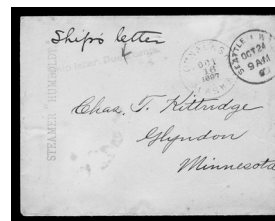 Ship's letter
STEAMER HUMBOLDT
OCT
16
1897
SEATTLE
OCT 24
9 AM
Chas. T. Kittridge
Glyndon
Minnesota